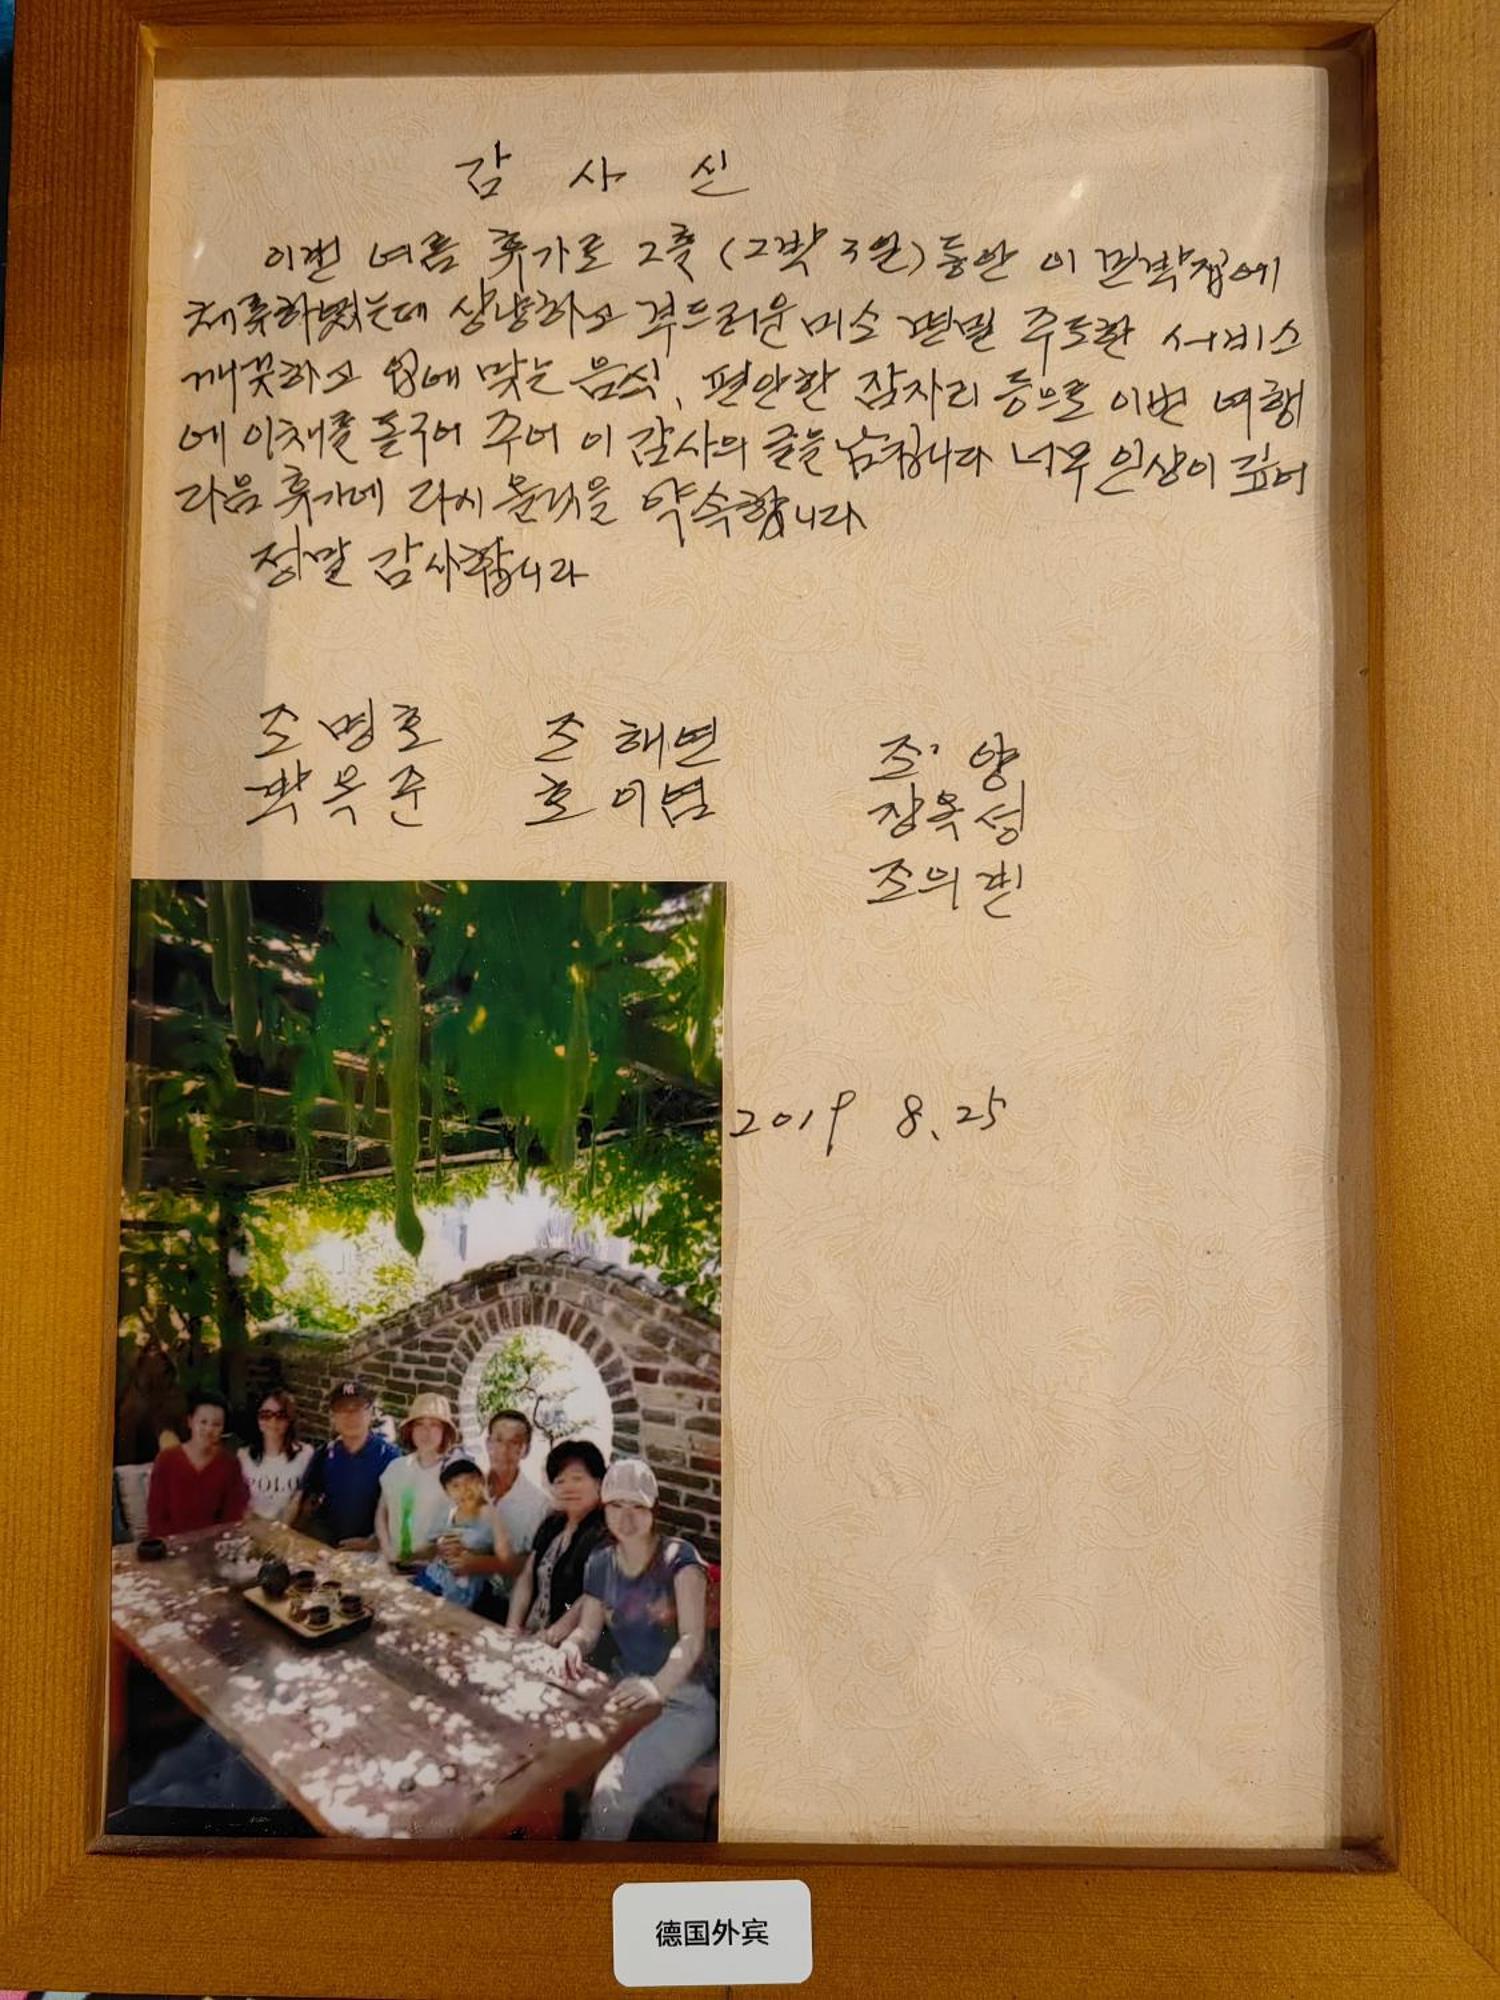 감 사 신
이번 여름 휴가로 2흘 (2박 3일) 동안 이 민박집에
체류하였는데 상냥하고 부드러운 미소 면밀 주도한 서비스
깨끗하고 입에 맞는 음식, 편안한 잠자리 등으로 이번 여행
에 이채를 돋구어 주어 이 감사의 글을 남깁니다 너무 인상이 깊어
다음 휴가에 다시 올것을 약속합니다
정말 감사합니다
조 명호 조 해연 조 양
박옥준 호이범 장옥성
조의
2019 8.25
POLO
德国外宾